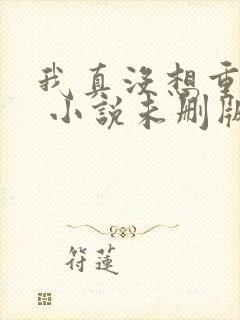 我真没想重
小说未删版
符莲